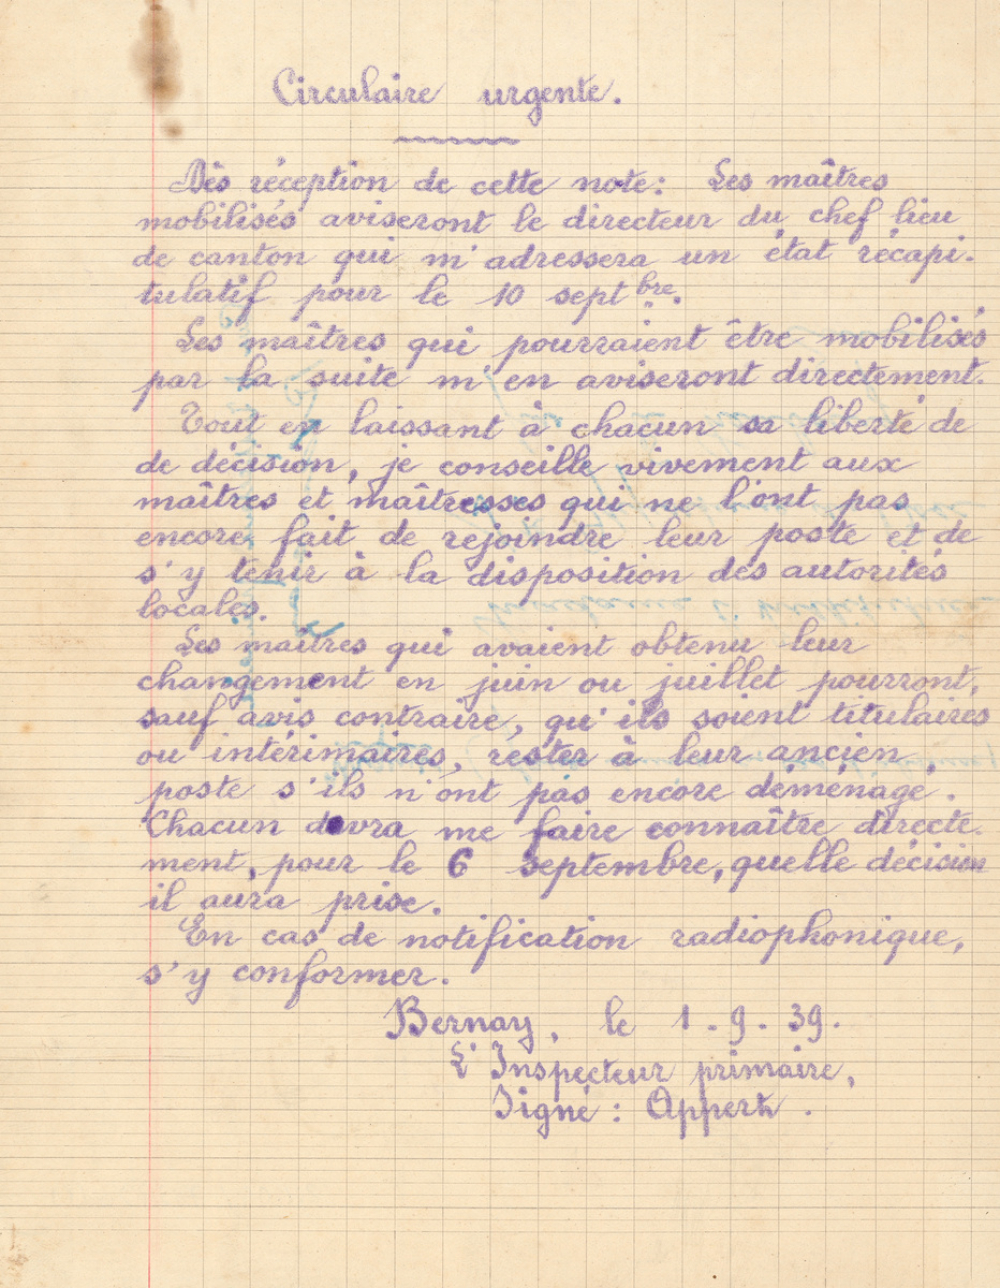 Circulaire urgente.
Dès réception de cette note: Les maîtres
mobilisés aviseront le directeur du chef lieu
de canton qui m'adressera un état récapi-
tulatif pour le 10 septbre.
Les maîtres qui pourraient être mobilisés
par la suite m'en aviseront directement.
Tout en laissant à chacun sa liberté de
de décision, je conseille vivement aux
maîtres et maîtresses qui ne l'ont pas
encore fait de rejoindre leur poste et de
s'y tenir à la disposition des autorités
locales.
Les maîtres qui avaient obtenu leur
changement en juin ou juillet pourront,
sauf avis contraire, qu'ils soient titulaires
ou intérimaires, rester à leur ancien
poste s'ils n'ont pas encore déménagé.
Chacun devra me faire connaître directe-
ment, pour le 6 septembre, quelle décision
il aura prise.
En cas de notification radiophonique,
s'y conformer.
Bernay, le 1-9-39.
L'Inspecteur primaire,
Signé: Appert.